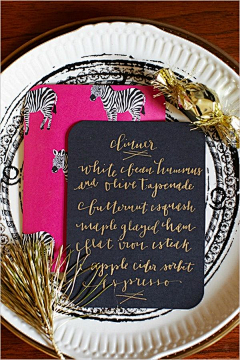 dinner
white bean hummus
and olive tapenade
butternut squash
maple glazed ham
flat iron steak
apple cider sorbet
espresso